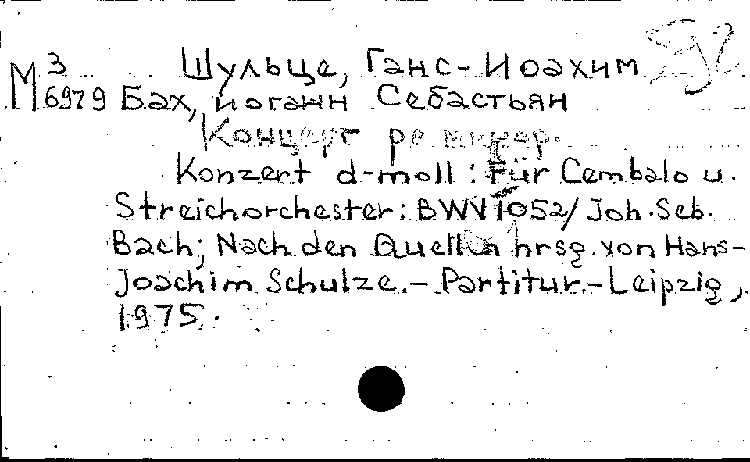 М 3
6979
Шульце, Ганс-Иоахим
Бах, Иоганн Себастьян
Концерт ре минор.
Konzert d-moll: Für Cembalo u.
Streichorchester: BWV 1052/Joh. Seb.
Bach; Nach den Quellen hrsg. von Hans-
Joachim Schulze.- Partitur.- Leipzig,
1975.